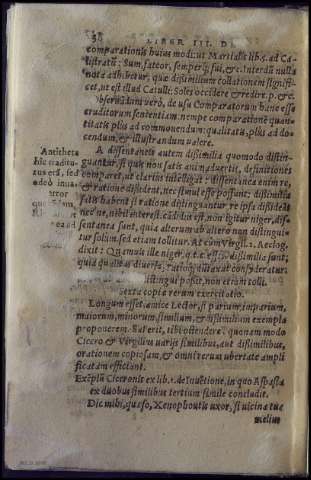 58 LIBER III. D
comparationis huius modi: ut Martialis lib. 5. ad Ca-
listratũ: Sum, fateor, semperq́; fui, &c. Interdũ nulla
nota adhibetur, quæ dissimilium collationem signifi-
cet, ut est illud Catulli: Soles occidere & redire. p. &c.
bseruãdum verò, de usu Comparatorum hanc esse
eruditorum sententiam. nempe comparationẽ quan-
titatis plus ad commonendum: qualitatis, plus ad do-
cendum, & illustrandum valere.
Antitheta A dissentaneis autem dissimilia quomodo distin-
guantur, si quis non satis animaduertit, definitiones
comparet, ut clariùs intelligat: dissentanea enim re,
& ratione dissidẽt, nec simul esse possunt: dissimilia
satis habent si ratione distinguantur re ipsa dissideãt
nec ne, nihil interest. cãdidus est, non igitur niger, dis-
sentanea sunt, quia alterum ab altero non distingui-
tur solùm, sed etiam tollitur. At cùm Virgil. 1. Aeclog.
dixit: Quamuis ille niger, q. t. c. esses, dissimilia sunt;
quia qualitas diuersa, ratione dũtaxat consyderatur:
distingui possit, non etiam tolli.
Sexta copia rerum exercitatio.
Longum esset, amice Lector, si parium, imparium,
maiorum, minorum, similium, & dissimilium exempla
proponerem. Sat erit, tibi ostendere, quonam modo
Cicero & Virgilius uarijs similibus, aut dissimilibus,
orationem copiosam, & omni rerum ubertate ampli
ficatam efficiant.
Exẽplũ Ciceronis ex lib. 1. de Inuẽtione, in quo Aspasia
ex duobus similibus tertium simile concludit.
Dic mihi, quæso, Xenophontis uxor, si uicina tua
melius